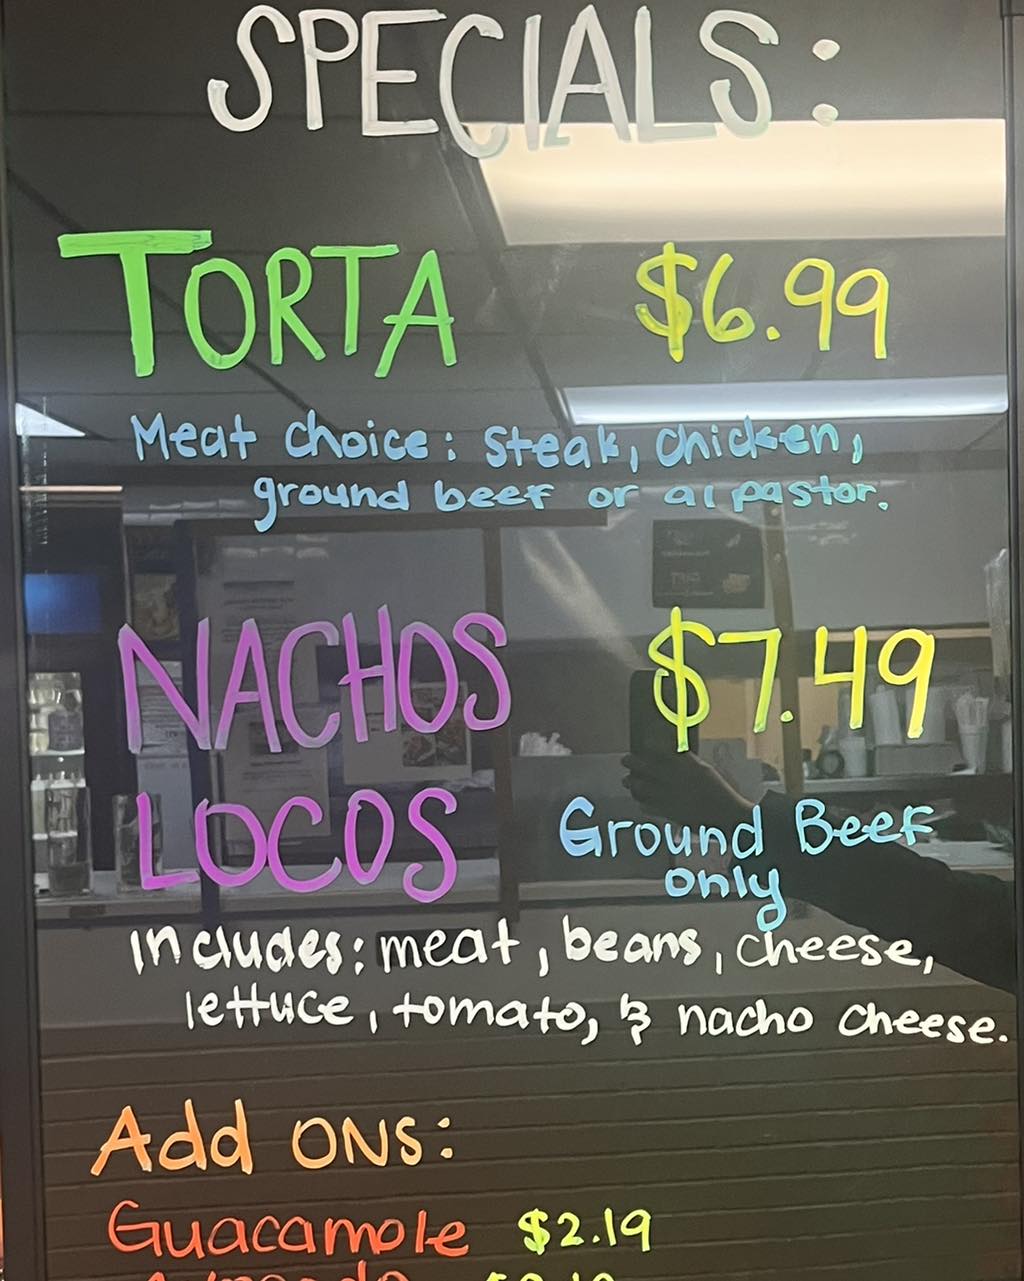 SPECIALS:
TORTA $6.99
Meat choice: steak, chicken,
ground beef or al pastor.
NACHOS $7.49
LOCOS Ground Beef
only
includes: meat, beans, cheese,
lettuce, tomato, & nacho cheese.
Add ONS:
Guacamole $2.19